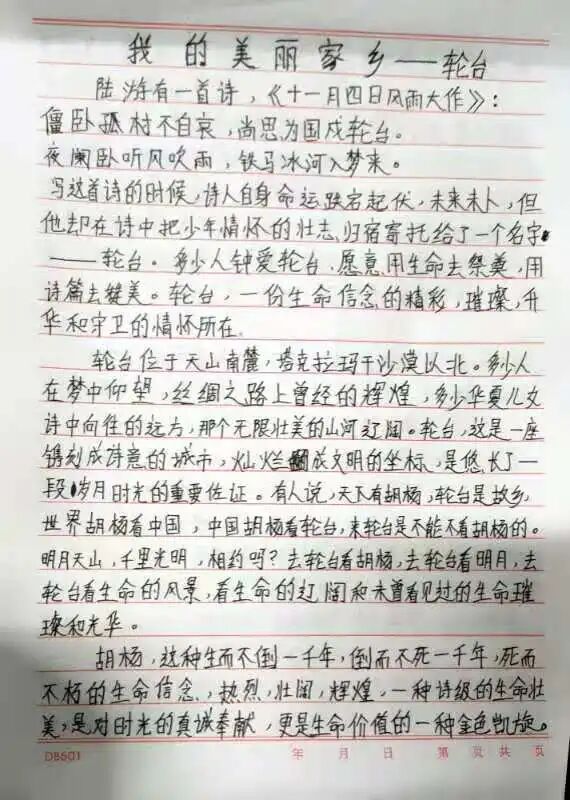 我的美丽家乡——轮台
陆游有一首诗，《十一月四日风雨大作》：
僵卧孤村不自哀，尚思为国戍轮台。
夜阑卧听风吹雨，铁马冰河入梦来。
写这首诗的时候，诗人自身命运跌宕起伏，未来未卜，但
他却在诗中把少年情怀的壮志，归宿寄托给了一个名字
——轮台。多少人钟爱轮台，愿意用生命去祭奠，用
诗篇去赞美。轮台，一份生命信念的精彩，璀璨，升
华和守卫的情怀所在。
轮台位于天山南麓，塔克拉玛干沙漠以北。多少人
在梦中仰望，丝绸之路上曾经的辉煌，多少华夏儿女
诗中向往的远方，那个无限壮美的山河辽阔。轮台，这是一座
镌刻成诗意的城市，灿烂成文明的坐标，是悠长了一
段岁月时光的重要佐证。有人说，天下看胡杨，轮台是故乡，
世界胡杨看中国，中国胡杨看轮台，来轮台是不能不看胡杨的。
明月天山，千里光明，相约吗？去轮台看胡杨，去轮台看明月，去
轮台看生命的风景，看生命的辽阔和未曾看见过的生命璀
璨和光华。
胡杨，这种生而不倒一千年，倒而不死一千年，死而
不朽的生命信念，热烈，壮阔，辉煌，一种诗级的生命壮
美，是对时光的真诚奉献，更是生命价值的一种金色凯旋。
DB601 年 月 日 第 页 共 页